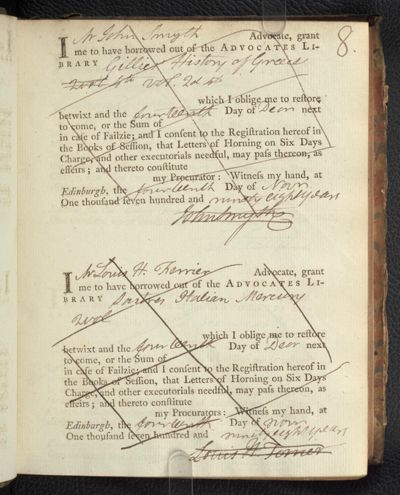 8.
I Mr John Smyth Advocate, grant
me to have borrowed out of the ADVOCATES LI-
BRARY Gillies History of Greece
Vol. 2d 4
which I oblige me to restore
betwixt and the fourteenth Day of Decr next
to come, or the Sum of
in case of Failzie; and I consent to the Registration hereof in
the Books of Session, that Letters of Horning on Six Days
Charge, and other executorials needful, may pass thereon, as
effeirs; and thereto constitute
my Procurator: Witness my hand, at
Edinburgh, the fourteenth Day of Novr
One thousand seven hundred and ninety eight years
John Smyth
I Mr Louis H. Ferrier Advocate, grant
me to have borrowed out of the ADVOCATES LI-
BRARY Italian Mercury
2 vol
which I oblige me to restore
betwixt and the fourteenth Day of Decr next
to come, or the Sum of
in case of Failzie; and I consent to the Registration hereof in
the Books of Session, that Letters of Horning on Six Days
Charge, and other executorials needful, may pass thereon, as
effeirs; and thereto constitute
my Procurators: Witness my hand, at
Edinburgh, the fourteenth Day of Novr
One thousand seven hundred and ninety eight years
Louis H. Ferrier